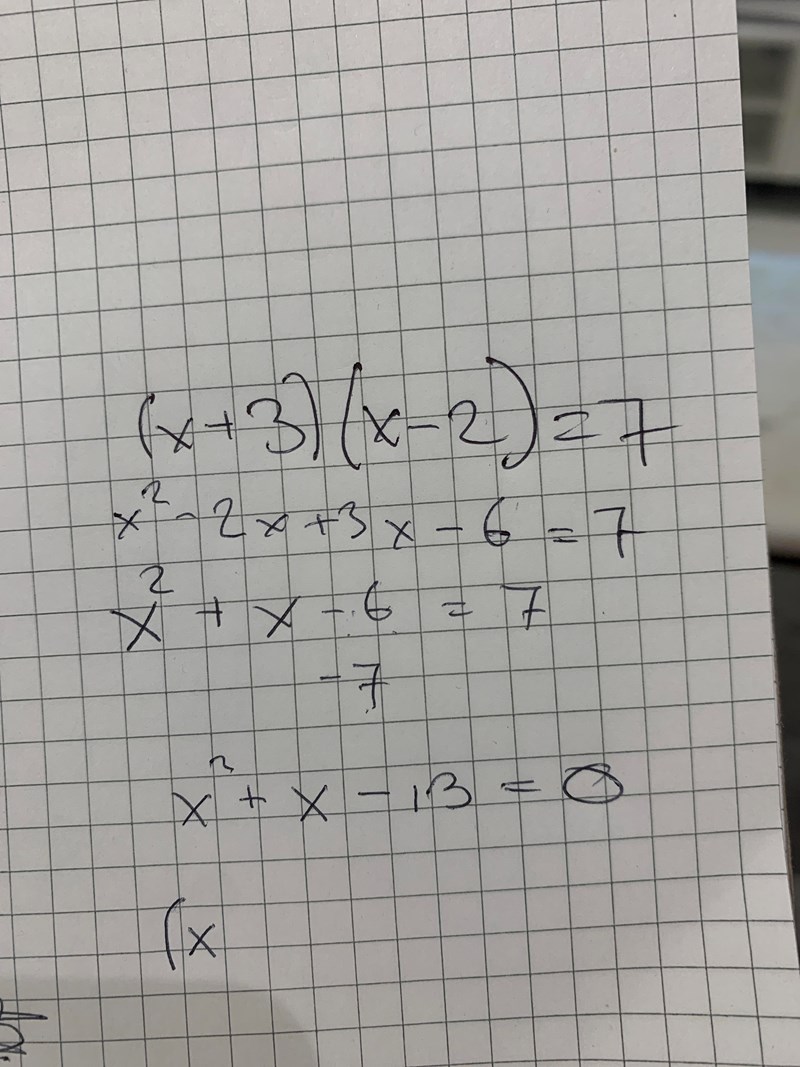 (x+3)(x-2)=7
x²-2x+3x-6=7
x²+x-6=7
-7
x²+x-13=0
(x